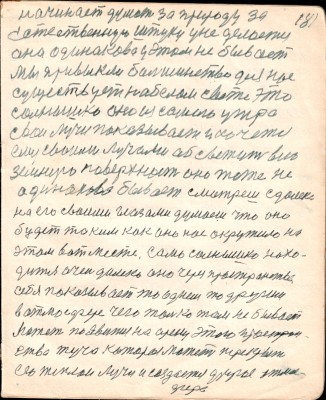 начинает думать за природу за
181
естественную штуку уне делаети
она одинакова у этом не бывает
мы привыкли балшинство для нас
существует на белом свете это
солнышко оно из самого утра
свои лучи показывает и хочет
своими лучами абсветить всю
земную поверхность оно тоже не
одинаково бывает смотреш здалека
на его своими глазами думаеш что оно
будет таким как оно нас окружило на
этам вот месте, само солнышко нахо-
дится очен далеко оно через пространства
себя показывает то одним то другим
в атмосфере чего только там не бывает
может появится на арену этого простран-
ства туча которая может перекрыть
его теплом лучи и создаеть другое